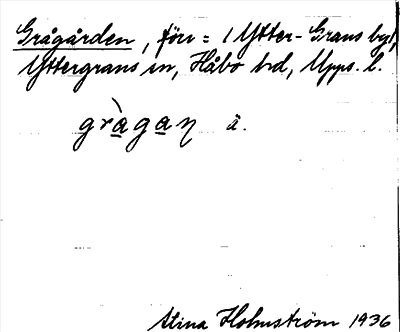 Grågården, förr = 1 Ytter-Grans by,
Yttergrans sn, Håbo hd, Upps. l.
gràgaŋ ä.
Stina Holmström 1936